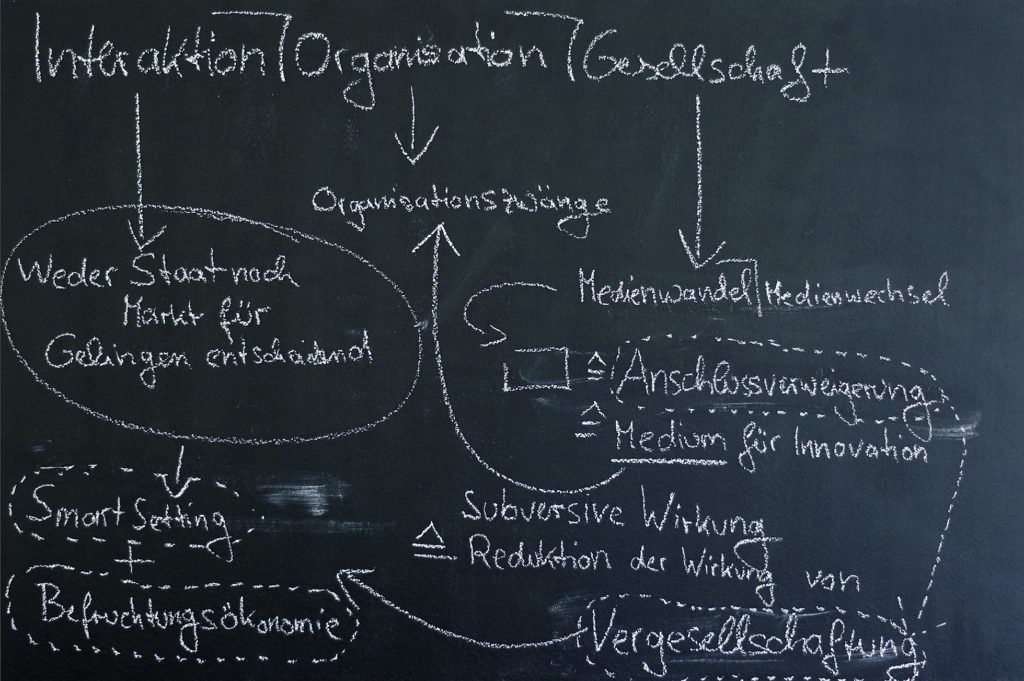 Interaktion/Organisation/Gesellschaft
Organisationszwänge
Weder Staat noch
Markt für
Gelingen entscheidend
Medienwandel/Medienwechsel
≙ Anschlussverweigerung
≙ Medium für Innovation
Smart Setting
+
Befruchtungsökonomie
Subversive Wirkung
≙ Reduktion der Wirkung von
Vergesellschaftung